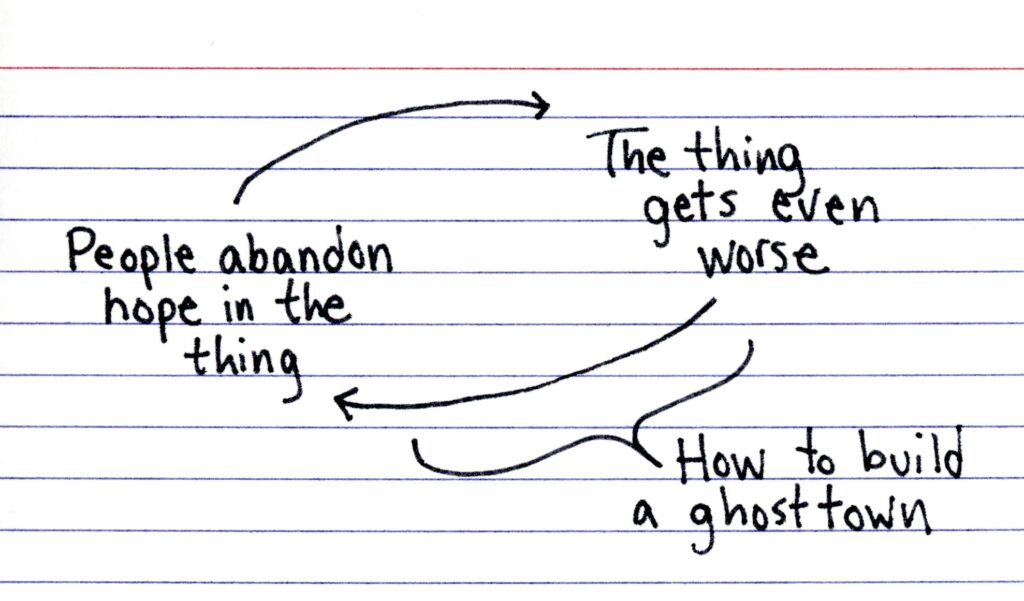 The thing
gets even
worse
People abandon
hope in the
thing
How to build
a ghost town